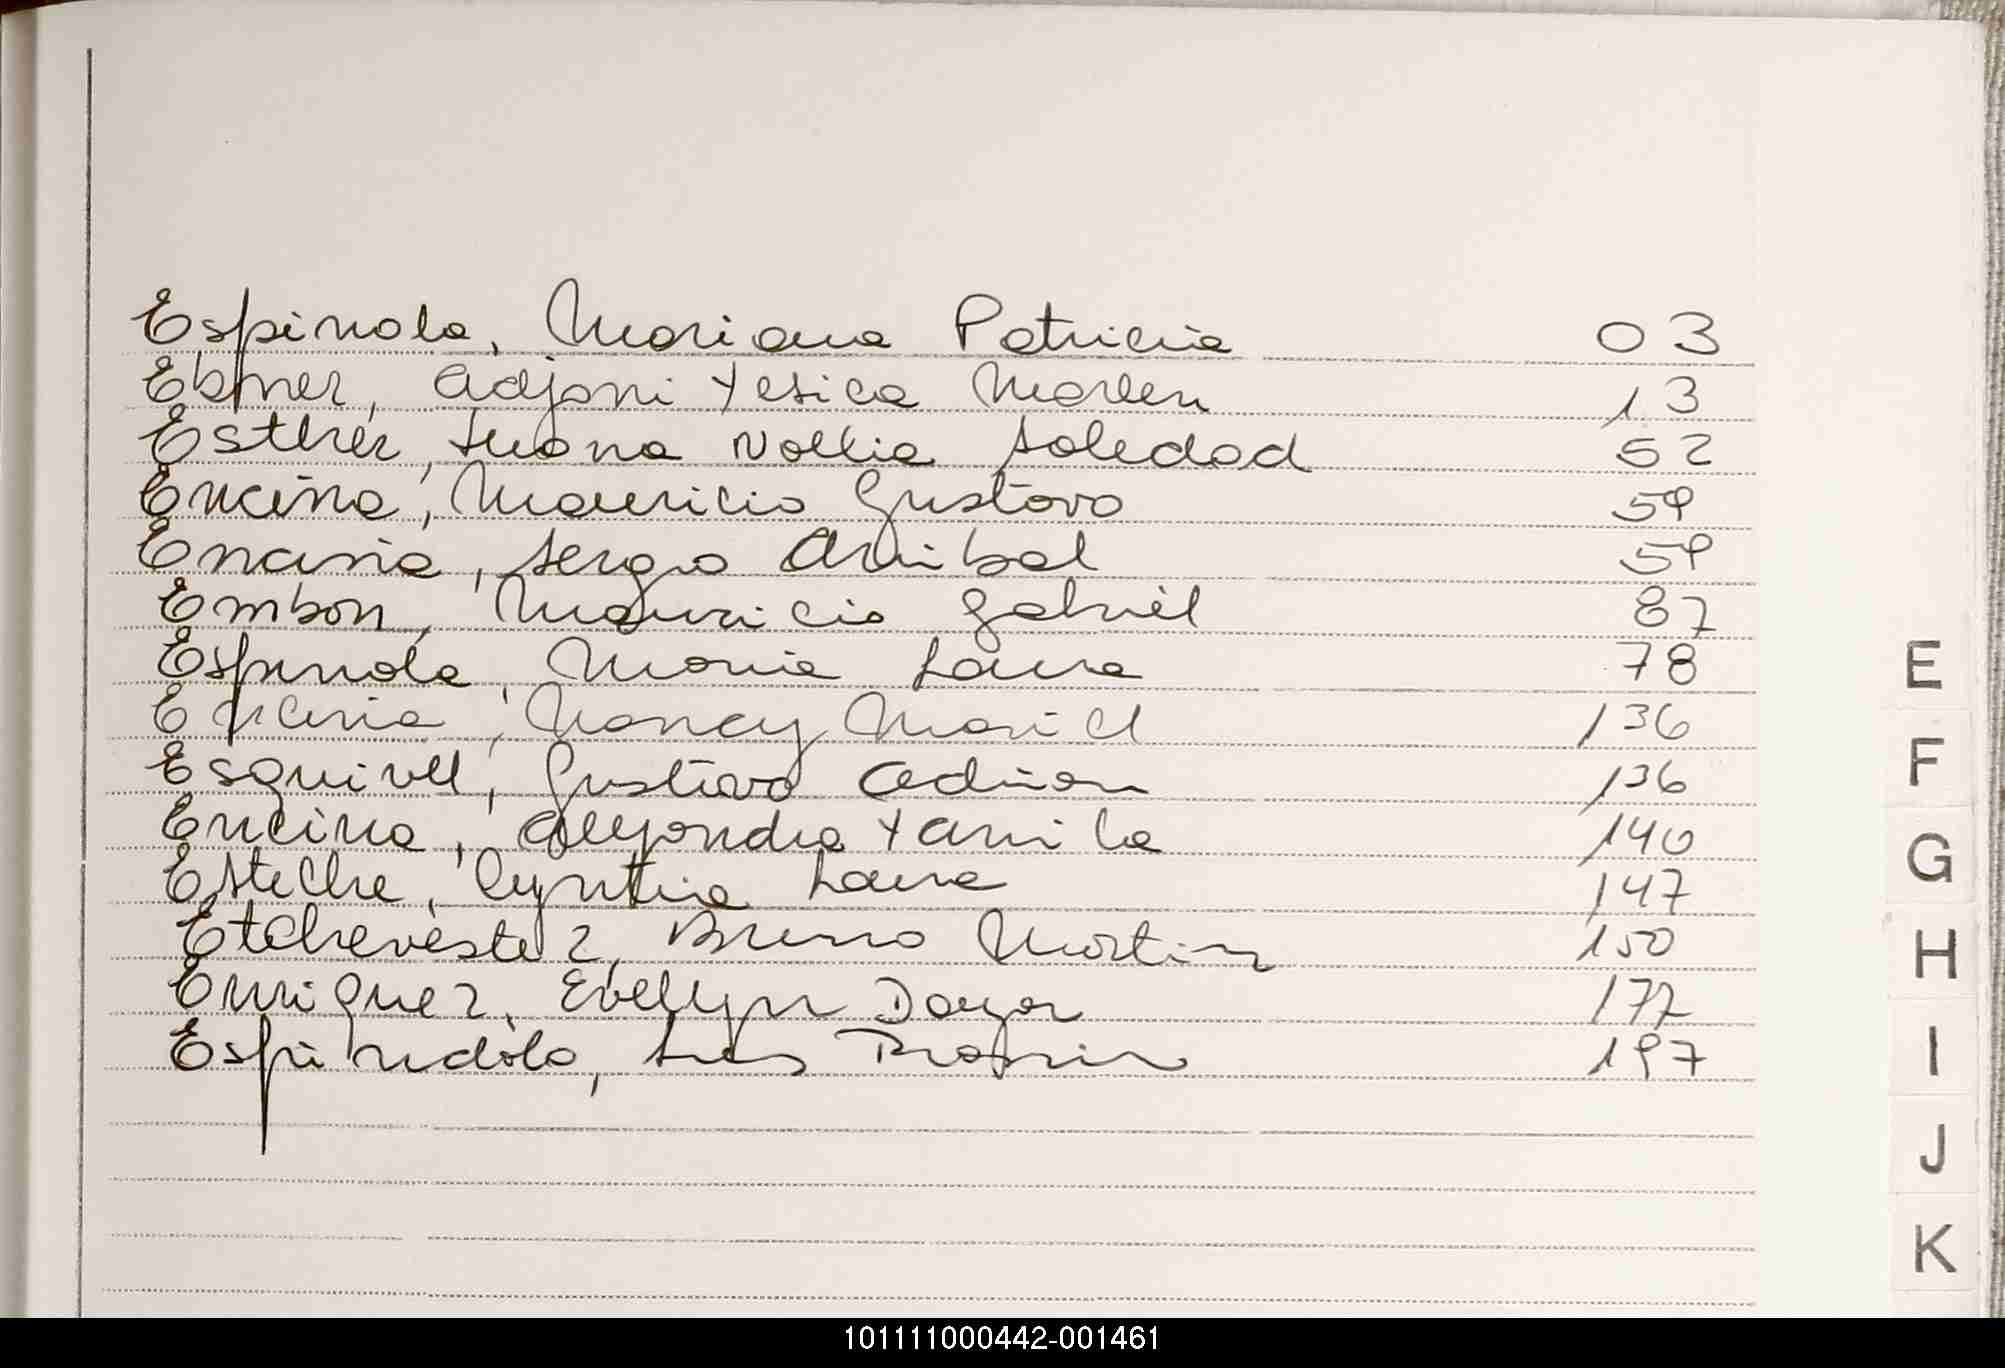 Espinola, Mariana Patricia 03
Ebner, Adjani Yesica Marlen 13
Esther, Juana Noelia Soledad 52
Encina, Mauricio Gustavo 59
Encina, Sergio Anibal 59
Embon, Mauricio Gabriel 87
Espinola, Maria Laura 78
Encina, Nancy Mariel 136
Esquivel, Gustavo Adrian 136
Encina, Alejandra Yamila 140
Esteche, Cyntia Laura 147
E
F
G
Etchevestez, Bruno Martin 150
H
Enriquez, Evellyn Dayan 177
Espindola, 197
I
J
K
101111000442-001461